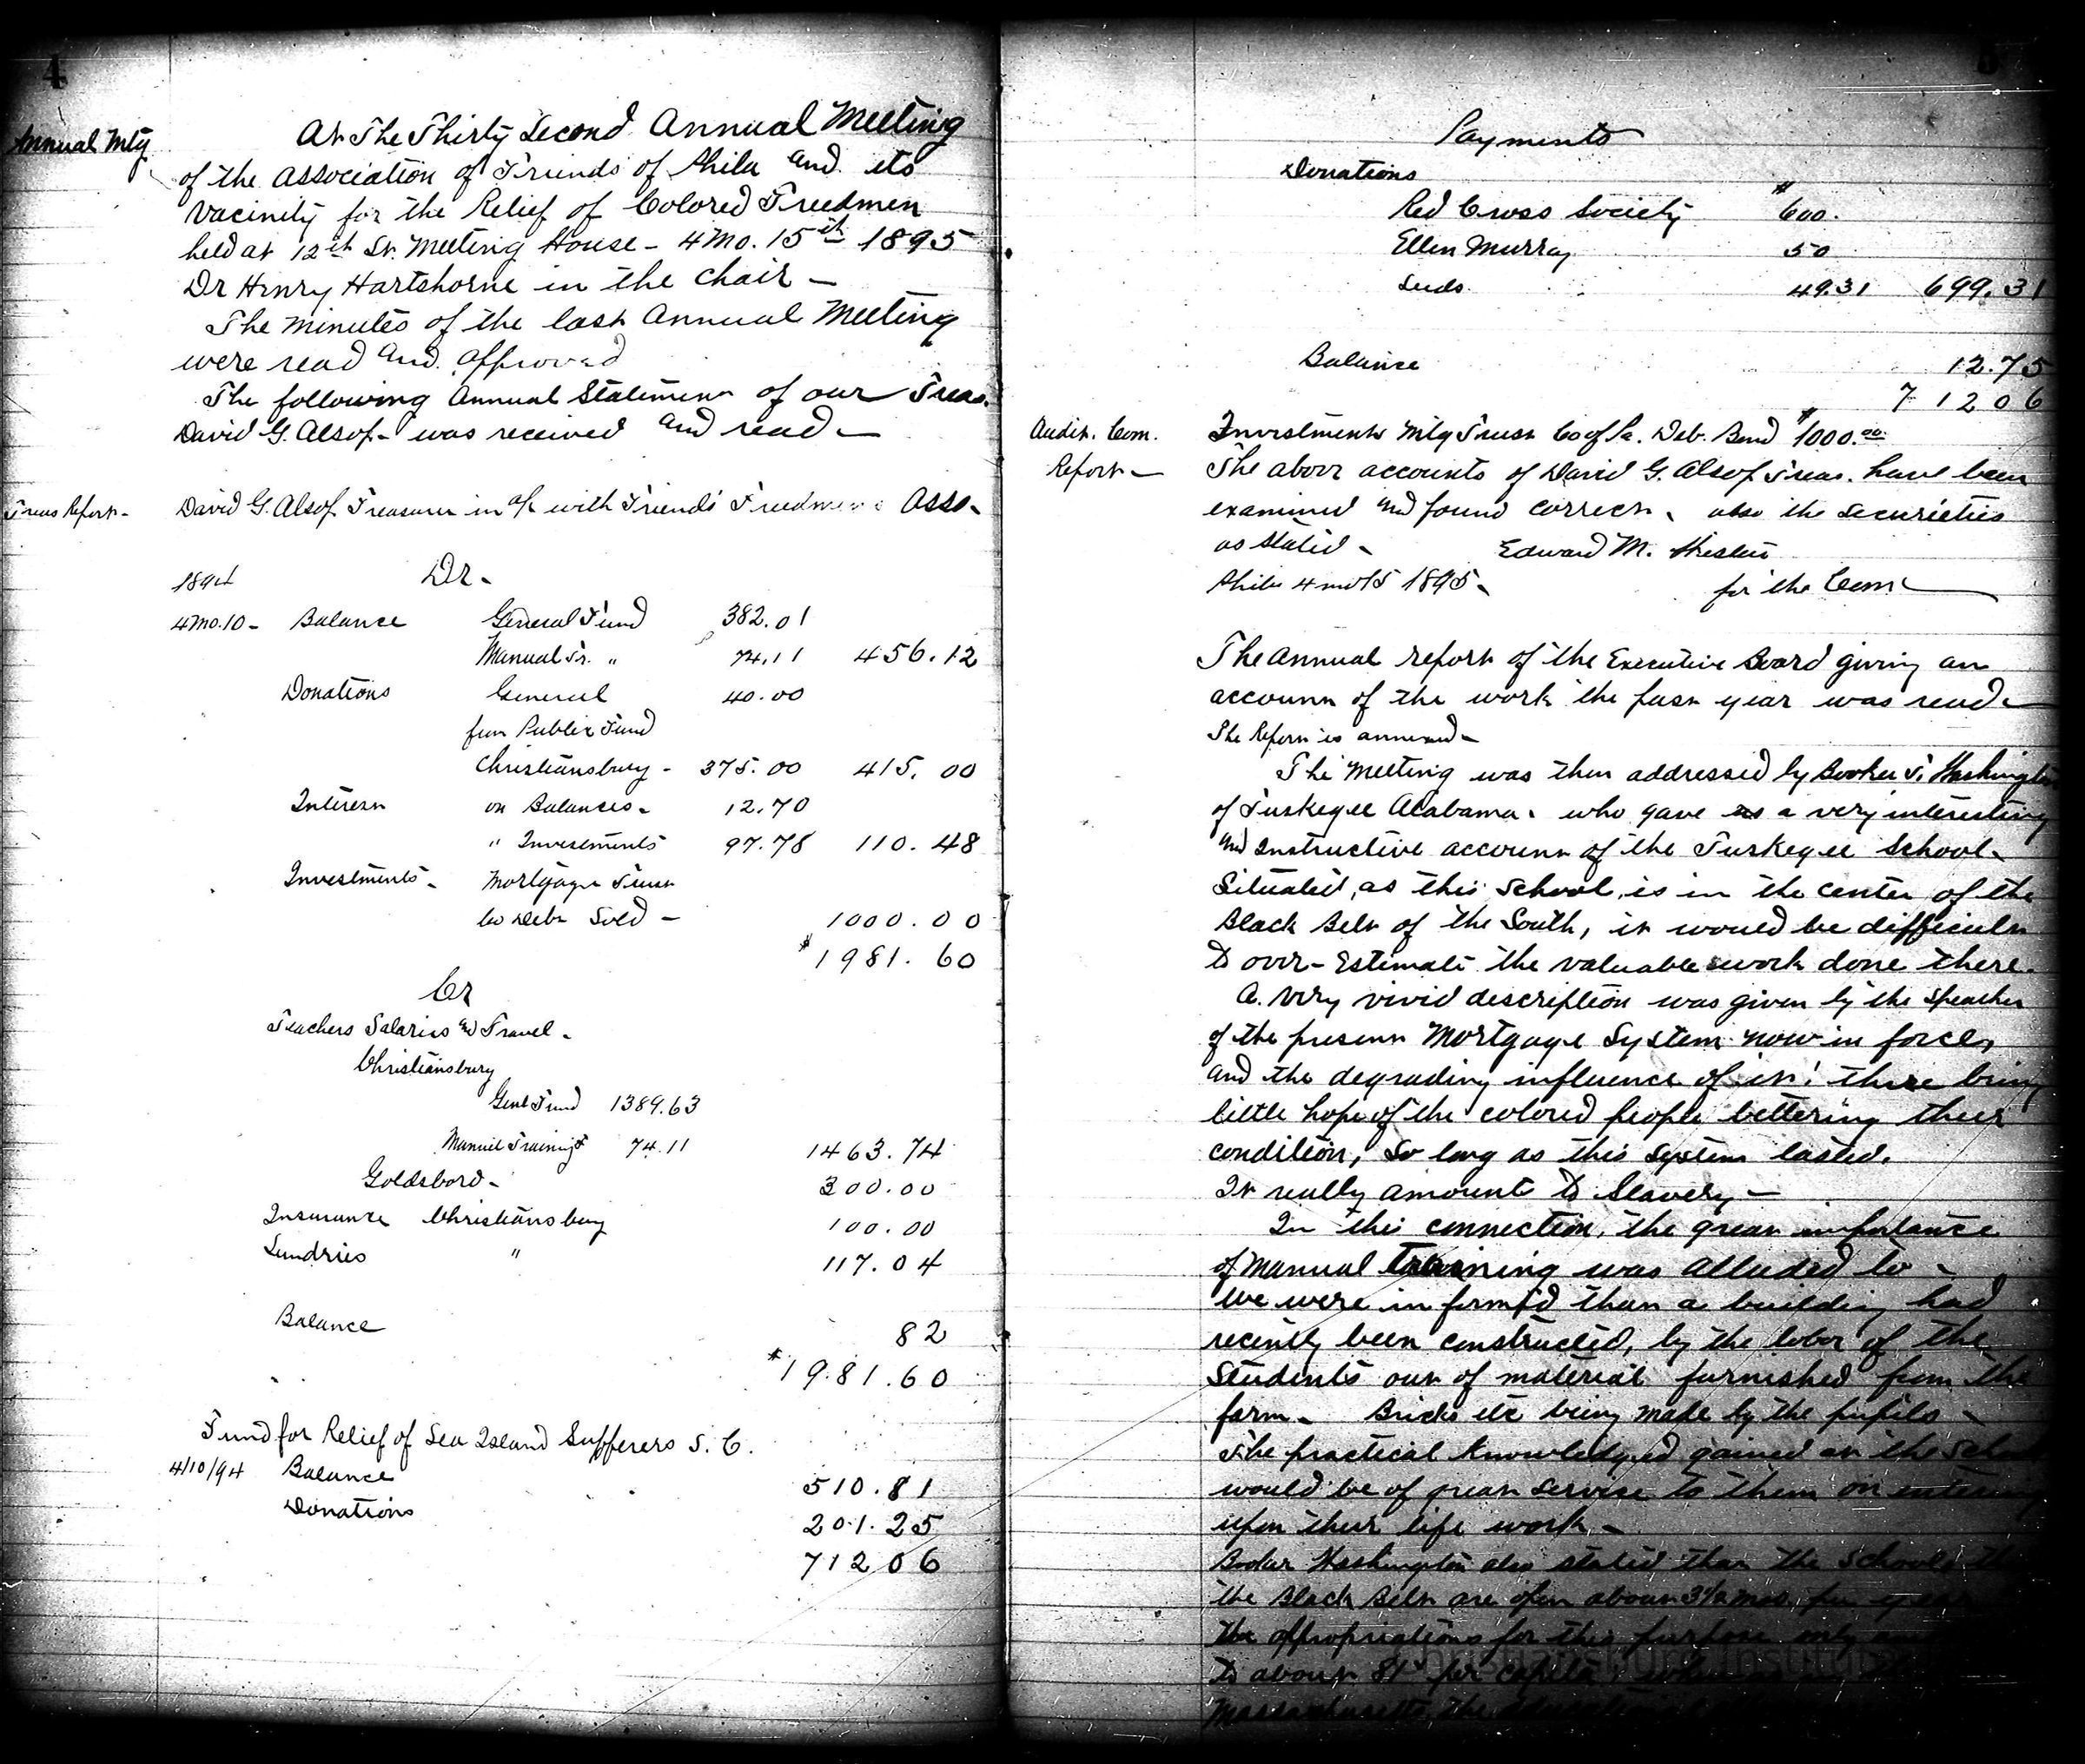 4
Annual Mtg
At The Thirty Second Annual Meeting
of the Association of Friends of Phila and its
Vacinity for the Relief of Colored Freedmen
held at 12th St. Meeting House - 4 Mo. 15th 1895
Dr Henry Hartshorne in the chair -
The minutes of the last Annual Meeting
were read and approved
The following Annual Statement of our Treas.
David G. Alsop - was received and read -
Treas Report -
David G. Alsop Treasurer in a/c with Friends' Freedmens Asso.
1894 Dr.
4 Mo. 10 - Balance General Fund 382.01
Manual Tr. " 74.11 456.12
Donations General 40.00
from Public Fund
Christiansburg - 375.00 415.00
Interest on Balances - 12.70
" Investments 97.78 110.48
Investments - Mortgage Trust
Co Deb Sold - 1000.00
$1981.60
Cr
Teachers Salaries and Travel -
Christiansburg
Genl Fund 1389.63
Manuel Training 74.11 1463.74
Goldsboro - 300.00
Insurance Christiansburg 100.00
Sundries " 117.04
Balance 82
$1981.60
Fund for Relief of Sea Island Sufferers S. C.
4/10/94 Balance 510.81
Donations 201.25
712 06
Payments
Donations
Red Cross Society $600.
Ellen Murray 50
Seeds 49.31 699.31
Balance 12.75
712 06
Audit. Com.
Report -
Investments Mtg Trust Co of Pa. Deb. Bond $1000.00
The above accounts of David G. Alsop Treas. have been
examined and found correct, also the securieties
as stated - Edward M.
Phila 4 mo 15 1895 - for the Com
The Annual report of the Executive Board giving an
account of the work the past year was read -
The Report is annexed -
The Meeting was then addressed by Booker T. Washington
of Tuskegee Alabama. who gave us a very interesting
and Instructive account of the Tuskegee School.
Situated, as this School, is in the center of the
Black Belt of the South, it would be difficult
to over-Estimate the valuable work done there.
A very vivid description was given by the speaker
of the present Mortgage System now in force,
and the degrading influence of it! there being
little hope of the colored people bettering their
condition, so long as this System lasted.
It really amounts to Slavery -
In this connection, the great importance
of Manual training was alluded to -
We were informed that a building had
recently been constructed, by the labor of the
Students out of material furnished from the
farm - Bricks etc being made by the pupils -
The practical knowledged gained at the School
would be of great service to them on entering
upon their life work -
Booker Washington also stated that the Schools
the Black Belt are open about 3 1/2 mos. per year
the appropriations for this purpose only
to about 81c per capita
Massachusetts the